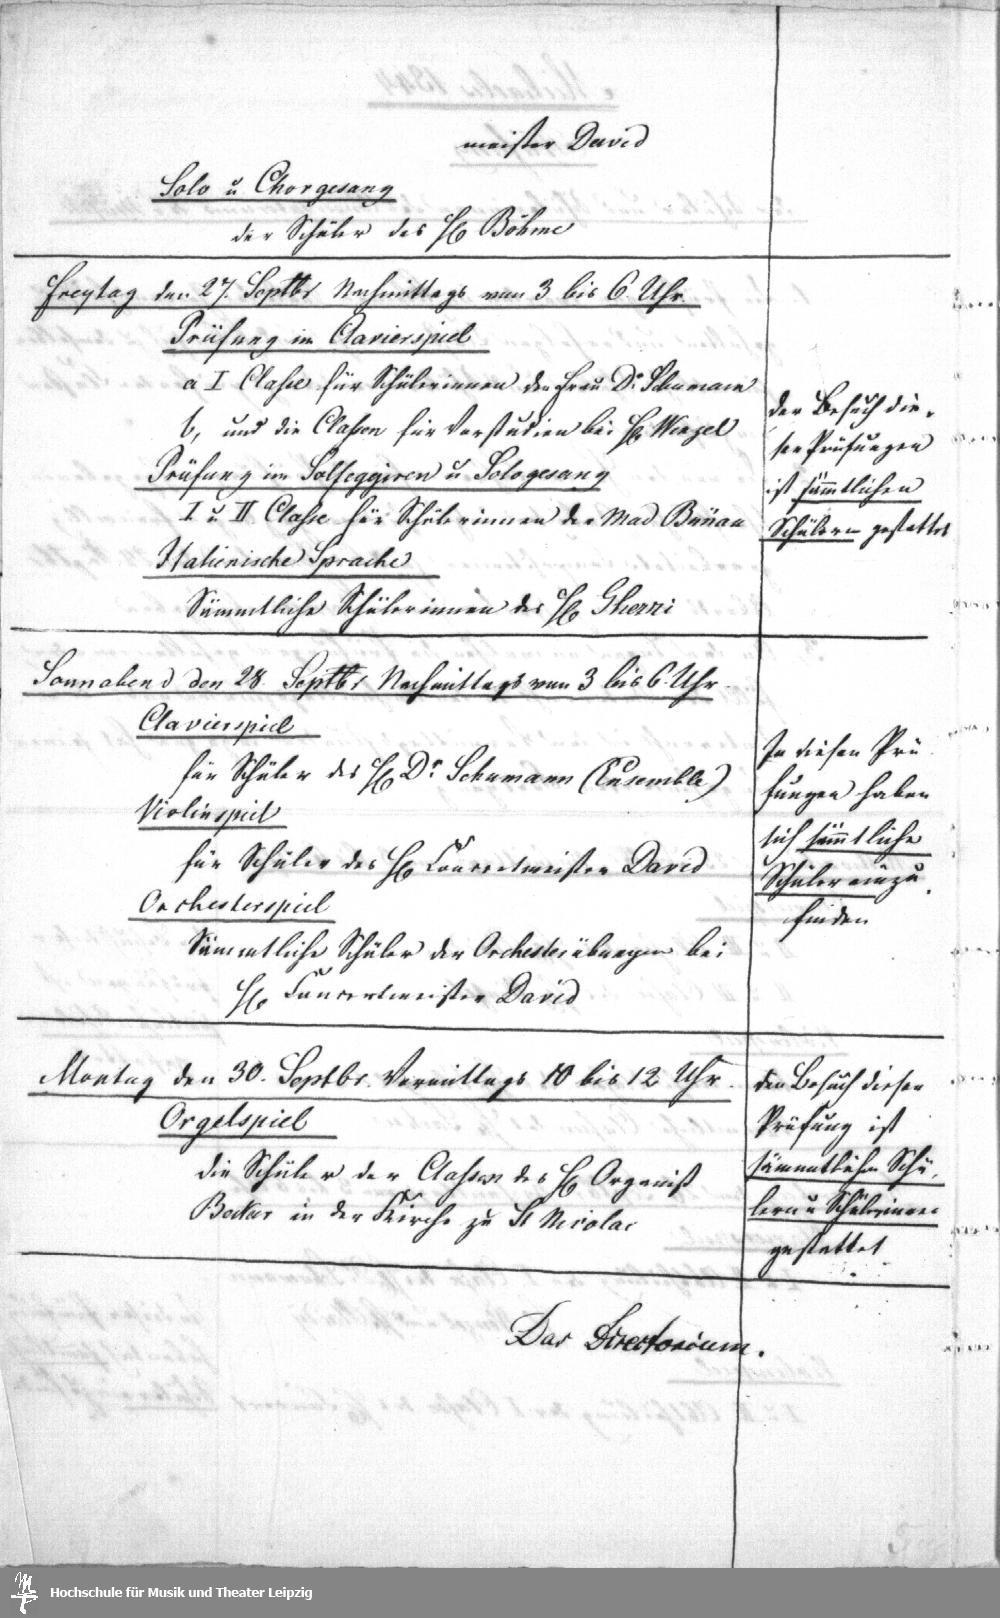 meister David
Solo u Chorgesang
der Schüler des H Böhme
Freytag den 27. Septbr Nachmittags von 3 bis 6 Uhr.
Prüfung im Clavierspiel
a I Classe für Schülerinnen der Frau Dr Schumann
b, und die Classen für Vorstudien bei H Wenzel
Prüfung im Solfeggiren u Sologesang
I u II Classe für Schülerinnen der Mad Bünau
Italienische Sprache
Sämmtliche Schülerinnen des H Gherzi
der Besuch die-
ser Prüfungen
ist sämmtlichen
Schülern gestattet
Sonnabend den 28. Septbr Nachmittags von 3 bis 6 Uhr.
Clavierspiel
für Schüler des H Dr Schumann (Ensemble)
Violinspiel
für Schüler des H Concertmeister David
Orchesterspiel
Sämmtliche Schüler der Orchesterübungen bei
H Concertmeister David
In diesen Prü
fungen haben
sich sämmtliche
Schüler einzu-
finden
Montag den 30. Septbr. Vormittags 10 bis 12 Uhr.
Orgelspiel
die Schüler der Classen des H Organist
Becker in der Kirche zu St Nicolai
der Besuch dieser
Prüfung ist
sämmtlichen Schü-
lern u Schülerinnen
gestattet.
Das Directorium.
Hochschule für Musik und Theater Leipzig